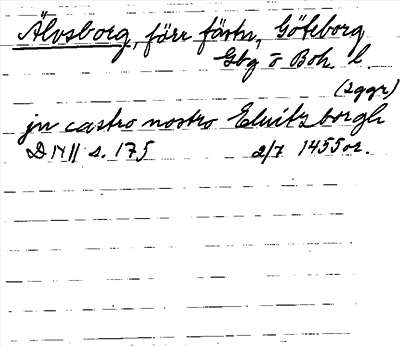 Älvsborg, förr fästn., Göteborg
Gbg o Boh. l.
(2ggr)
jn castro nostro Eluitzborgh
DN II s. 175 2/7 1455 or.